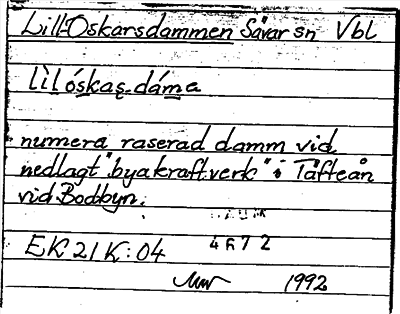 Lill-Oskarsdammen Sävar sn Vbl
lìl óskas̩dáma
numera raserad damm vid
nedlagt "byakraftverk" i Täfteån
vid Bodbyn.
EK 21 K:04 4672
1992